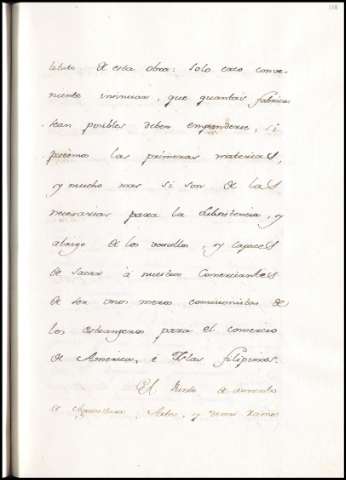 de esta obra: solo creo conve-
niente insinuar, que quantas fabricas
sean posibles deben emprenderse, si
las primeras materias,
y mucho mas si son de las
necesarias para la subsistencia, y
abrigo de los vasallos, y capaces
de sacar à nuestros Comerciantes
de ser unos meros comisionistas de
los estrangeros para el comercio
de America, è Yslas filipinas.
El de
Artes, y demas Ramos